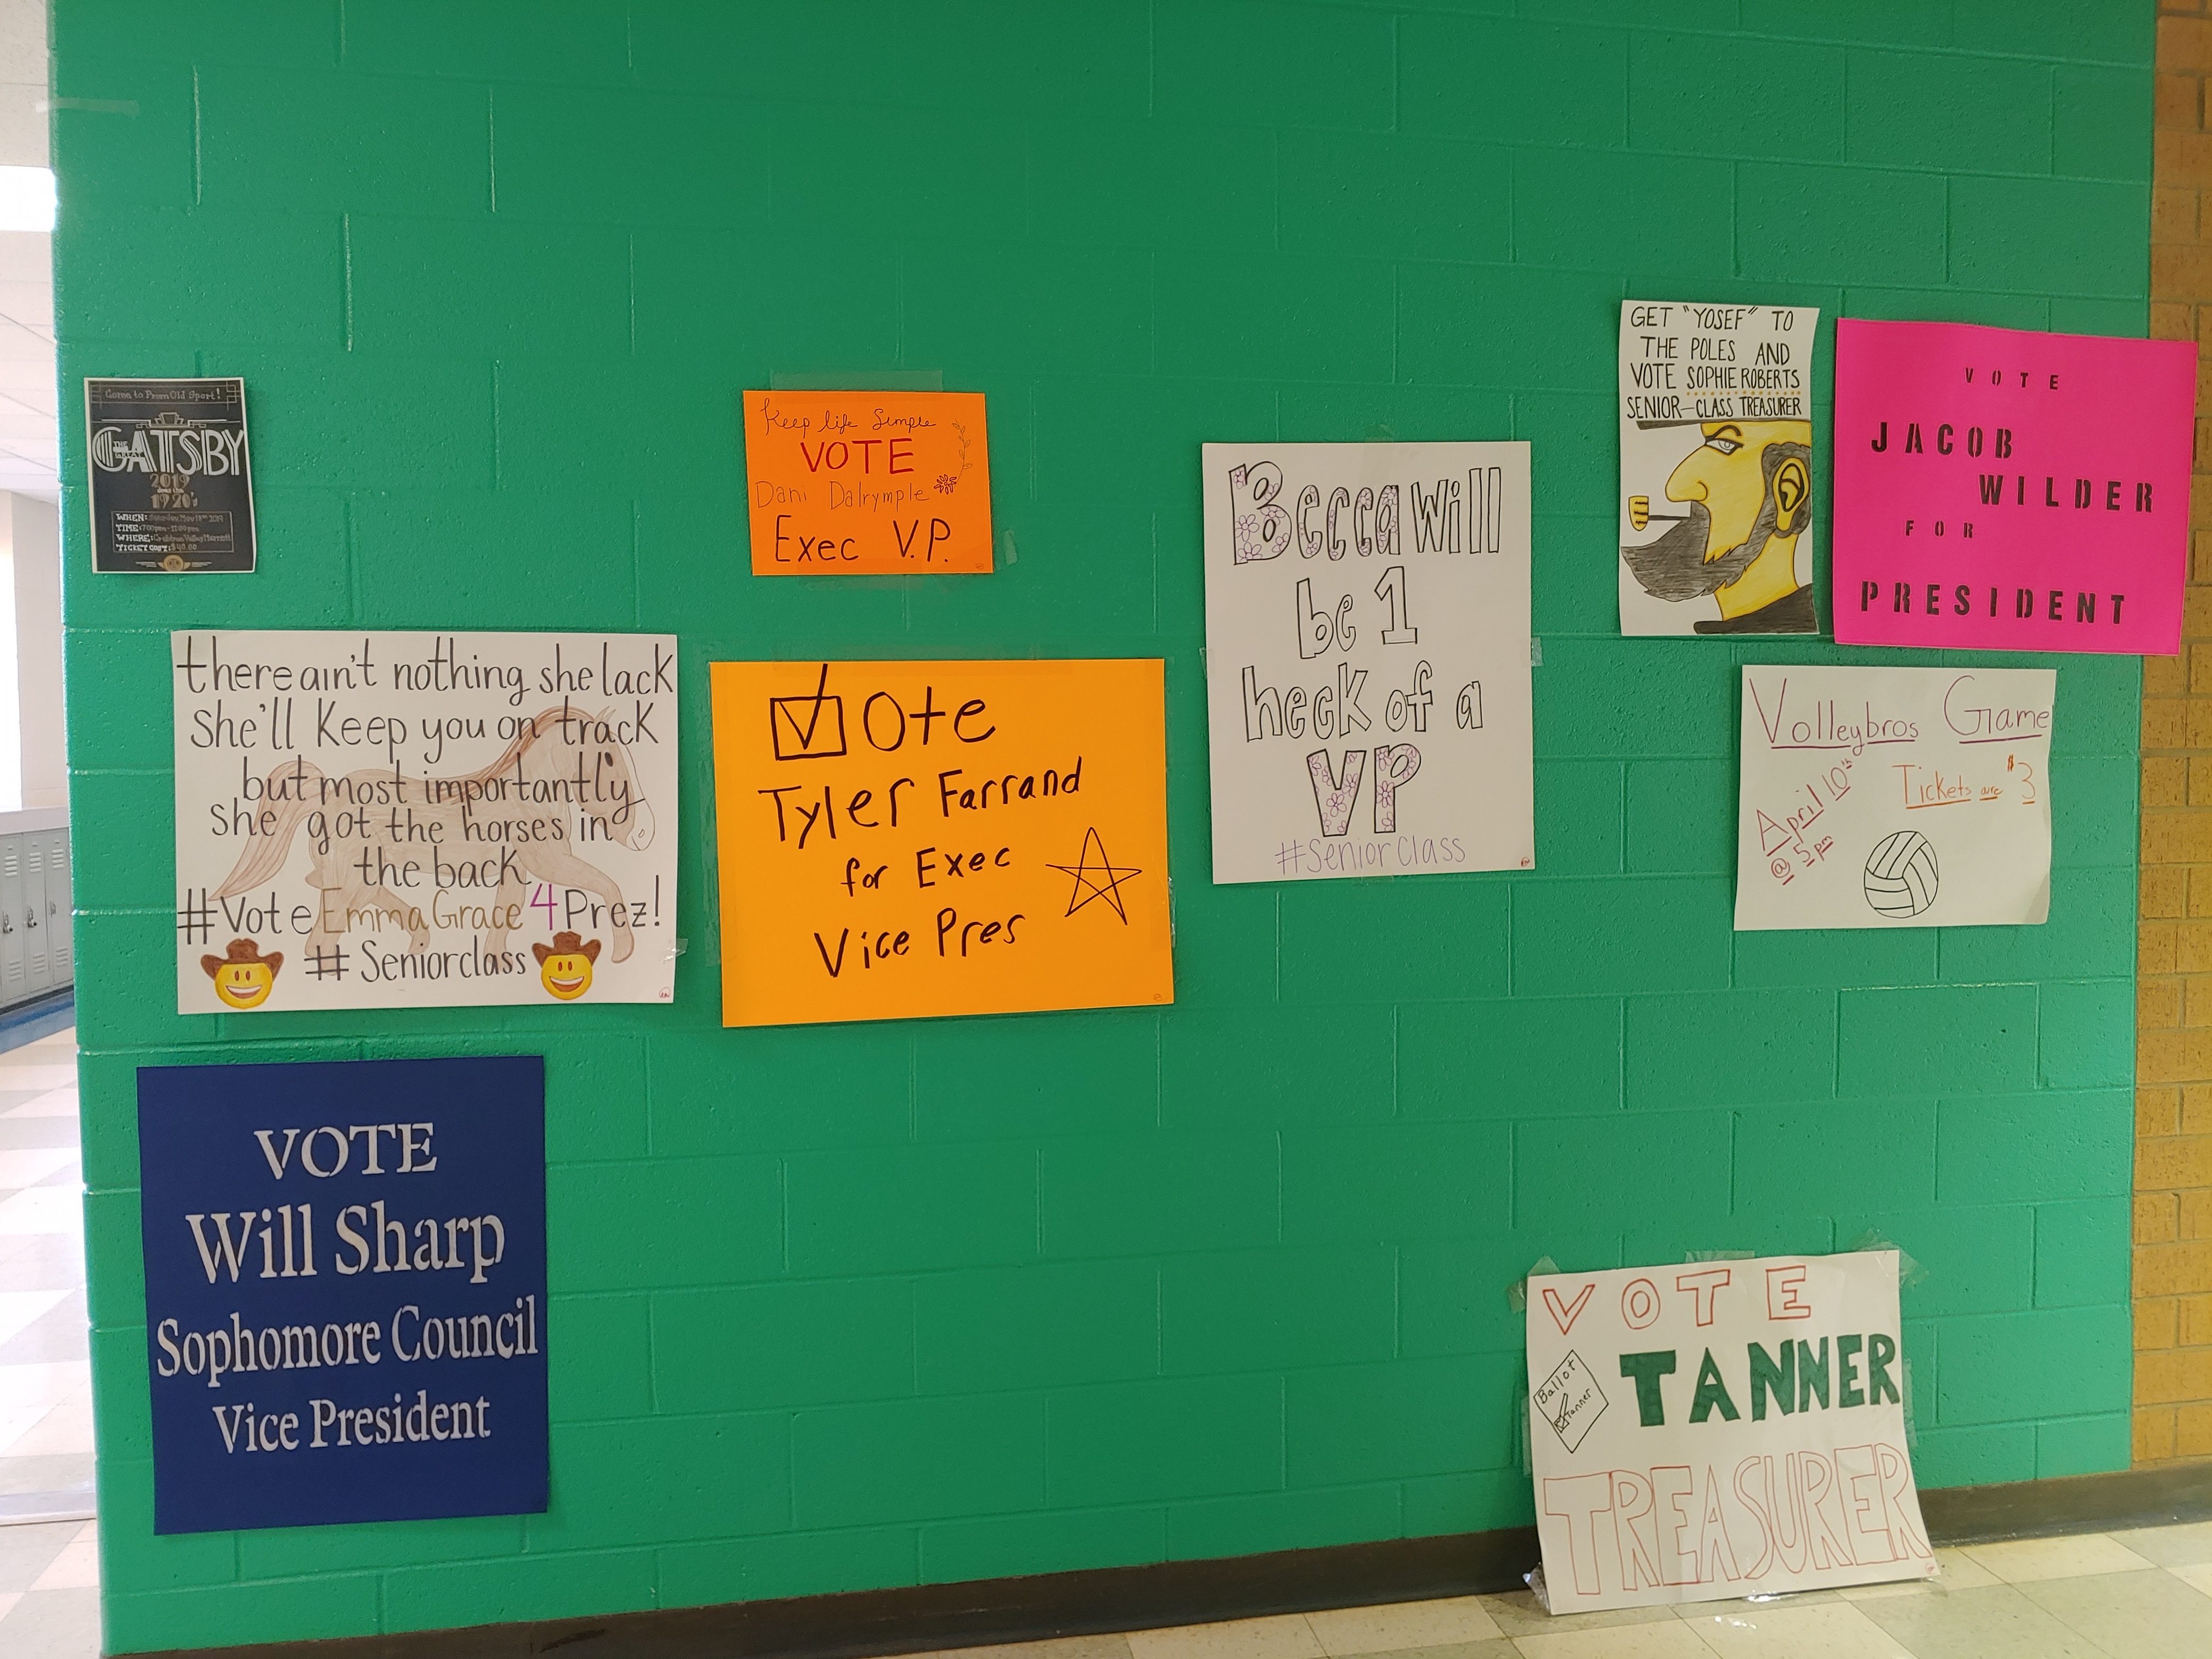 Come to Prom Old Sport!
THE GREAT
GATSBY
2019
1920's
WHEN: Saturday May 18th 2019
TIME: 7:00pm-11:00pm
WHERE: Crabtree Valley Marriott
TICKET COST: $40.00
there ain't nothing she lack
she'll keep you on track
but most importantly
she got the horses in
the back
#Vote Emma Grace 4 Prez!
# Seniorclass
VOTE
Will Sharp
Sophomore Council
Vice President
Keep life Simple
VOTE
Dani Dalrymple
Exec V.P.
Vote
Tyler Farrand
for Exec
Vice Pres
Becca will
be 1
heck of a
VP
#Seniorclass
GET "YOSEF" TO
THE POLES AND
VOTE SOPHIE ROBERTS
SENIOR-CLASS TREASURER
VOTE
JACOB
WILDER
FOR
PRESIDENT
Volleybros Game
April 10th
@ 5pm
Tickets are $3
VOTE
TANNER
Ballot
Tanner
TREASURER